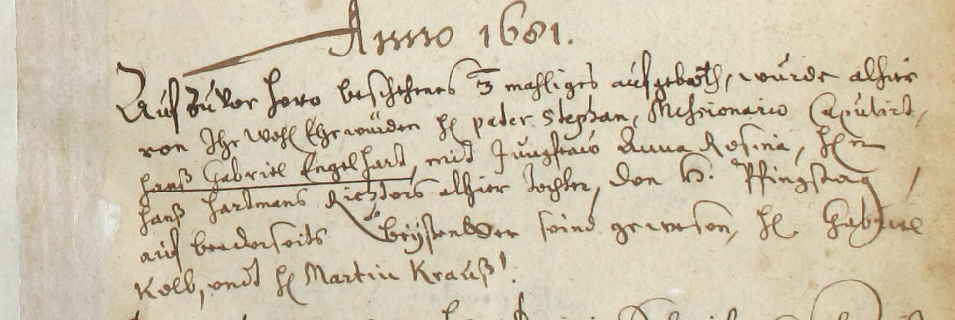 Anno 1681.
Auf zuvor hero beschehenes 3 mahliges aufgeboth, wurde alhier
von Ihr Wohl Ehrwürden H. pater Stephan, Missionario Copulirt,
hanß Gabriel Engelhart, mit Jungfraw Anna Rosina, H.
hanß hartmans Richters alhier Tochter, den H. Pfingstag,
auf beederseits beystender seind gewesen, H. Gabriel
Kolb, und H. Martin Krauß.